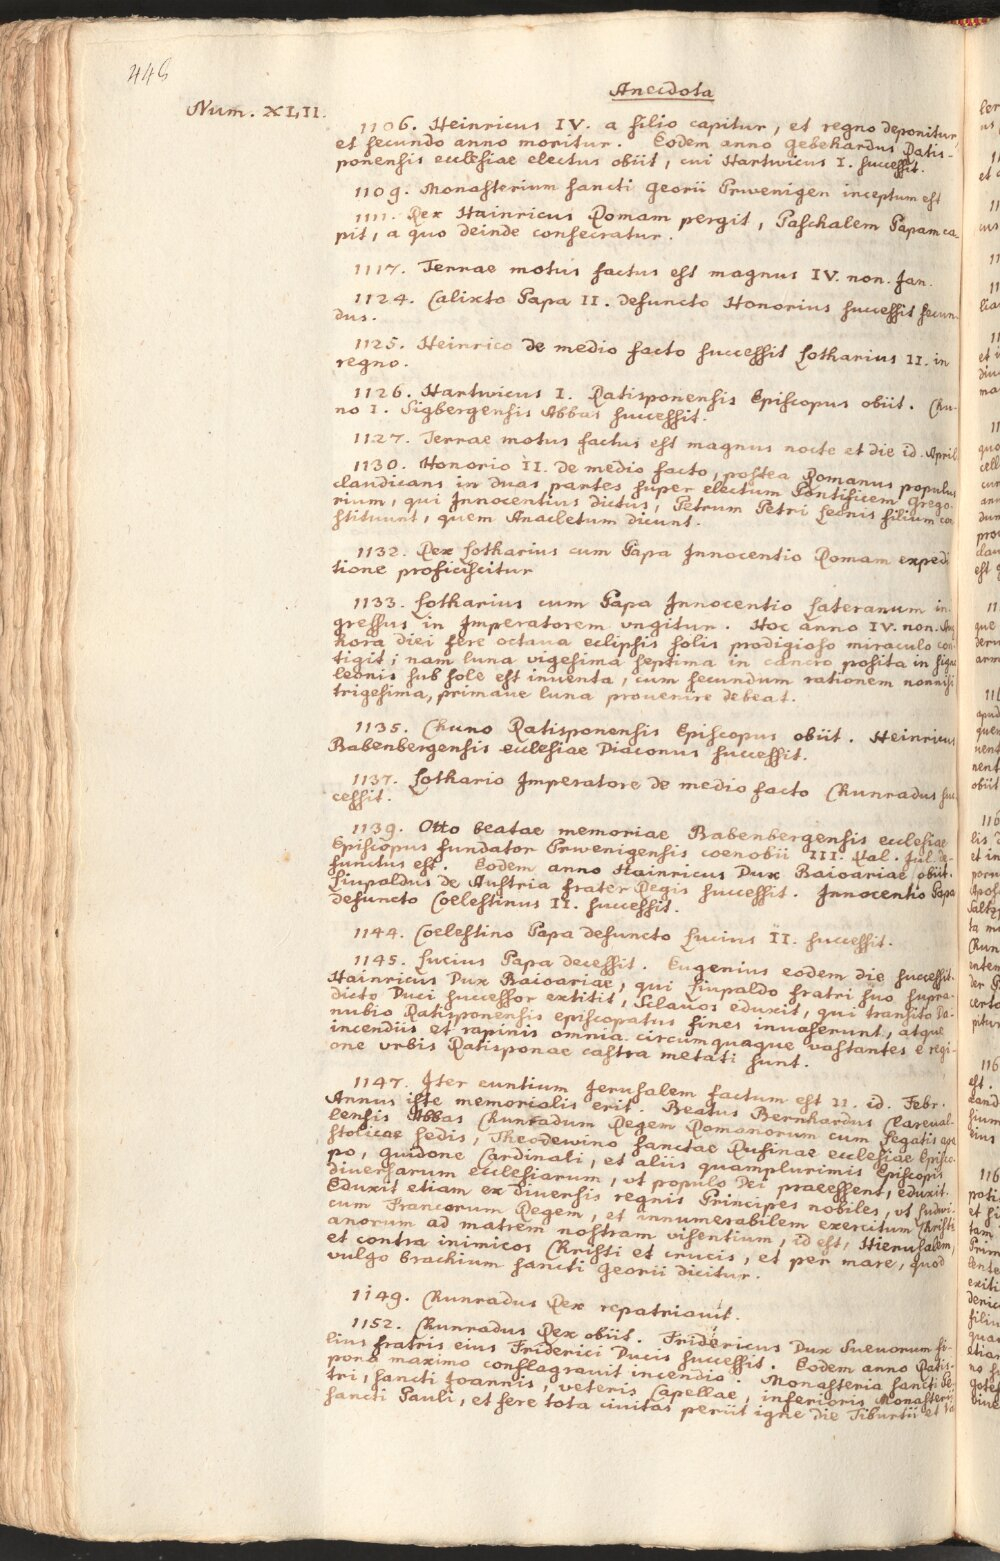 448
Anecdota
Num. XLII.
1106. Heinricus IV. a filio capitur, et regno deponitur,
et secundo anno moritur. Eodem anno Gebehardus Ratis-
ponensis ecclesiae electus obiit, cui Hartwicus I. successit.
1109. Monasterium sancti Georii Prwenigen inceptum est
1111. Rex Hainricus Romam pergit, Paschalem Papam ca-
pit, a quo deinde consecratur.
1117. Terrae motus factus est magnus IV. non. Jan.
1124. Calixto Papa II. defuncto Honorius successit secun-
dus.
1125. Heinrico de medio facto successit Lotharius II. in
regno.
1126. Hartwicus I. Ratisponensis Episcopus obiit. Chu-
no I. Sigbergensis Abbas successit.
1127. Terrae motus factus est magnus nocte et die id. April.
1130. Honorio II. de medio facto, postea Romanus populus
claudicans in duas partes super electum Pontificem Grego-
rium, qui Innocentius dictus, Petrum Petri Leonis filium con
stituunt, quem Anacletum dicunt.
1132. Rex Lotharius cum Papa Innocentio Romam expedi
tione proficiscitur
1133. Lotharius cum Papa Innocentio Lateranum in-
gressus in Imperatorem vngitur. Hoc anno IV. non.
hora diei fere octaua eclipsis solis prodigioso miraculo con
tigit; nam luna vigesima septima in cancro posita in signo
leonis sub sole est inuenta, cum secundum rationem nonnisi
trigesima, primaue luna prouenire debeat.
1135. Chuno Ratisponensis Episcopus obiit. Heinricus
Babenbergensis ecclesiae Diaconus successit.
1137. Lothario Imperatore de medio facto Chunradus suc
cessit.
1139. Otto beatae memoriae Babenbergensis ecclesiae
Episcopus fundator Prwenigensis coenobii III. Kal. Jul. de-
functus est. Eodem anno Hainricus Dux Baioariae obiit.
Liupaldus de Austria frater Regis successit. Innocentio Papa
defuncto Coelestinus II. successit.
1144. Coelestino Papa defuncto Lucius II. successit.
1145. Lucius Papa decessit. Eugenius eodem die successit.
Hainricus Dux Baioariae, qui Liupaldo fratri suo supra-
dicto Duci successor extitit, Sclauos eduxit, qui transito Da-
nubio Ratisponensis episcopatus fines inuaserunt, atque
incendiis et rapinis omnia circumquaque vastantes e regi-
one vrbis Ratisponae castra metati sunt.
1147. Iter euntium Jerusalem factum est II. id. Febr.
Annus iste memorialis erit. Beatus Bernhardus Clareual-
lensis Abbas Chunradum Regem Romanorum cum Legatis apo
stolicae sedis, Theodewino sanctae Rufinae ecclesiae Episco-
po, Guidone Cardinali, et aliis quamplurimis Episcopis
diuersarum ecclesiarum, vt populo Dei praeessent, eduxit.
Eduxit etiam ex diuersis regnis Principes nobiles, vt Ludwi-
cum Francorum Regem, et innumerabilem exercitum Christi
anorum ad matrem nostram visentium, id est, Hierusalem,
et contra inimicos Christi et crucis, et per mare, quod
vulgo brachium sancti Georii dicitur.
1149. Chunradus Rex repatriauit.
1152. Chunradus Rex obiit. Fridericus Dux Sueuorum fi-
lius fratris eius Friderici Ducis successit. Eodem anno Ratis-
pona maximo conflagrauit incendio. Monasteria sancti Pe-
tri, sancti Joannis, veteris Capellae, inferioris Monasterii
sancti Pauli, et fere tota ciuitas periit igne die Tiburtii et Va